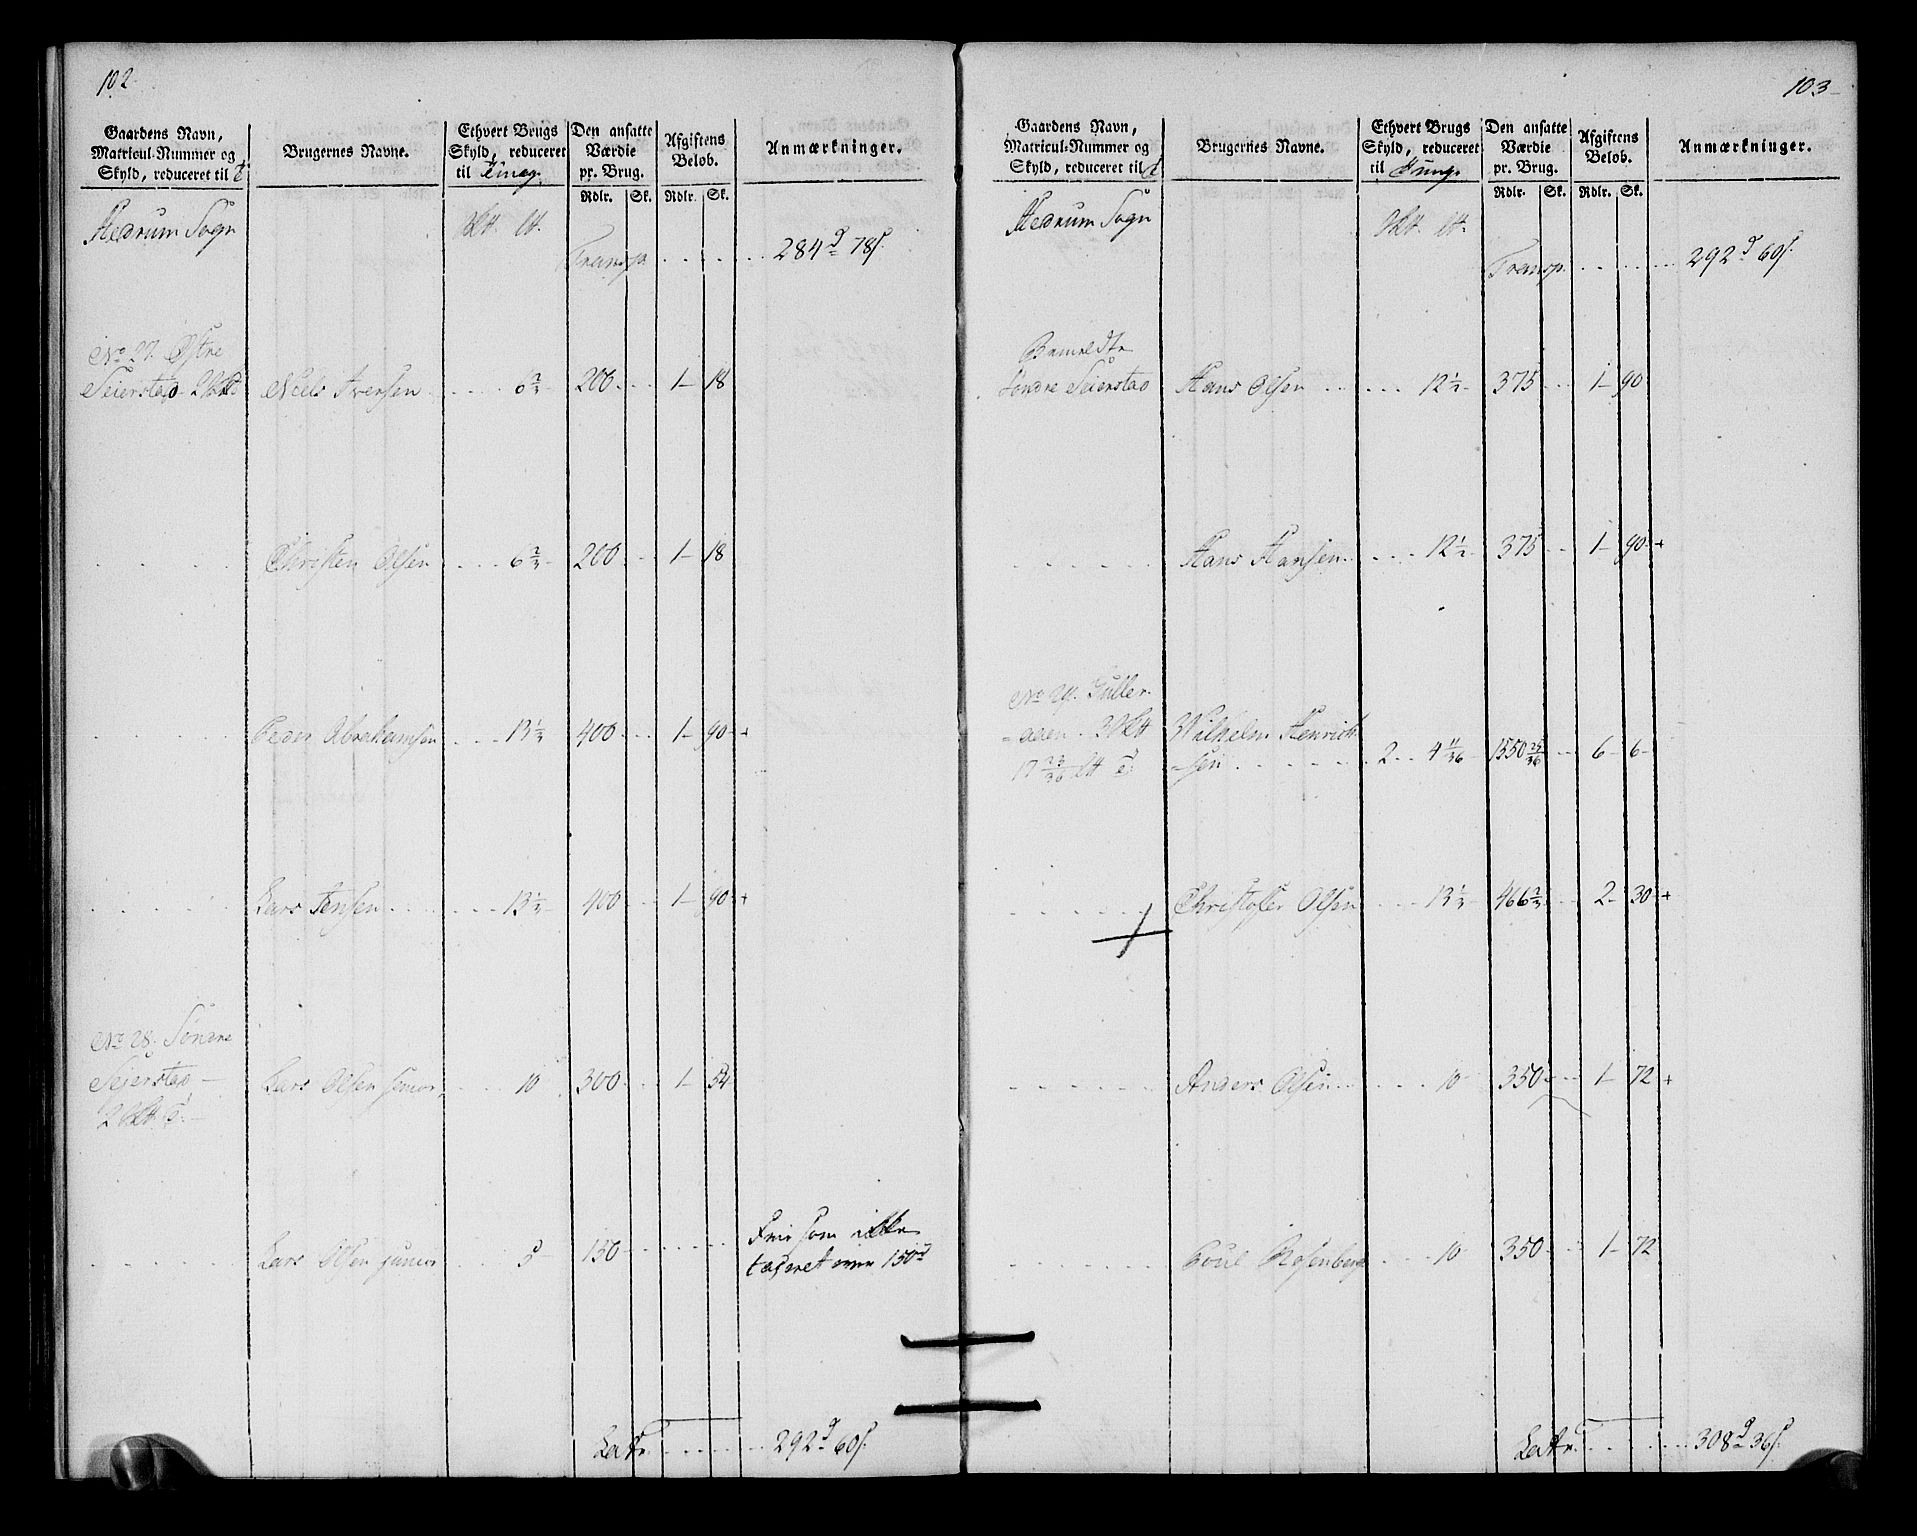 102
Gaardens Navn, Matricul-Nummer og Skyld, reduceret til
Brugernes Navne.
Ethvert Brugs Skyld, reduceret til Tunge.
Den ansatte Værdie pr. Brug.
Afgiftens Beløb.
Anmærkninger.
Rdlr. Sk. Rdlr. Sk.
Hedrum Sogn
Transp. . . . . . 284 d 78 s.
No 27. Østre
Seierstad 2 Niels Iversen . . . . 6 2/3 200 . . 1 - 18
Christen Olsen . . . 6 2/3 200 . . 1 - 18
Peder Abrahamsen . . . 13 1/3 400 . . 1 - 90 +
Lars Jensen . . . . . . 13 1/3 400 . . 1 - 90 +
No 28. Søndre
Seierstad - Lars Olsen senior, . . 10 300 . . 1 - 54
2
Lars Olsen junior . . 5 150 . . . . . Frie som ikke
taxeret over 150 d
Latr. . . . . . 292 d 60 s.
103
Gaardens Navn, Matricul-Nummer og Skyld, reduceret til
Brugernes Navne.
Ethvert Brugs Skyld, reduceret til Tunge.
Den ansatte Værdie pr. Brug.
Afgiftens Beløb.
Anmærkninger.
Rdlr. Sk. Rdlr. Sk.
Hedrum Sogn
Transp. . . . . . 292 d 60 s.
Bemeldte
Søndre Seierstad Hans Olsen . . . . . 12 1/2 375 . . 1 - 90
Hans Hansen . . . . 12 1/2 375 . . 1 - 90 +
No 29.
Wilhelm Henrich
17 23/36 -sen . . . . . . 2 . . 4 11/36 1550 25/36 . . 6 - 6
Christoffer Olsen . . . 13 1/3 466 2/3 . . 2 - 30 +
Anders Olsen . . . . . 10 350 . . 1 - 72 +
Poul Rosenberg . . . 10 350 . . 1 - 72
Latr. . . . . . 308 d 36 s.